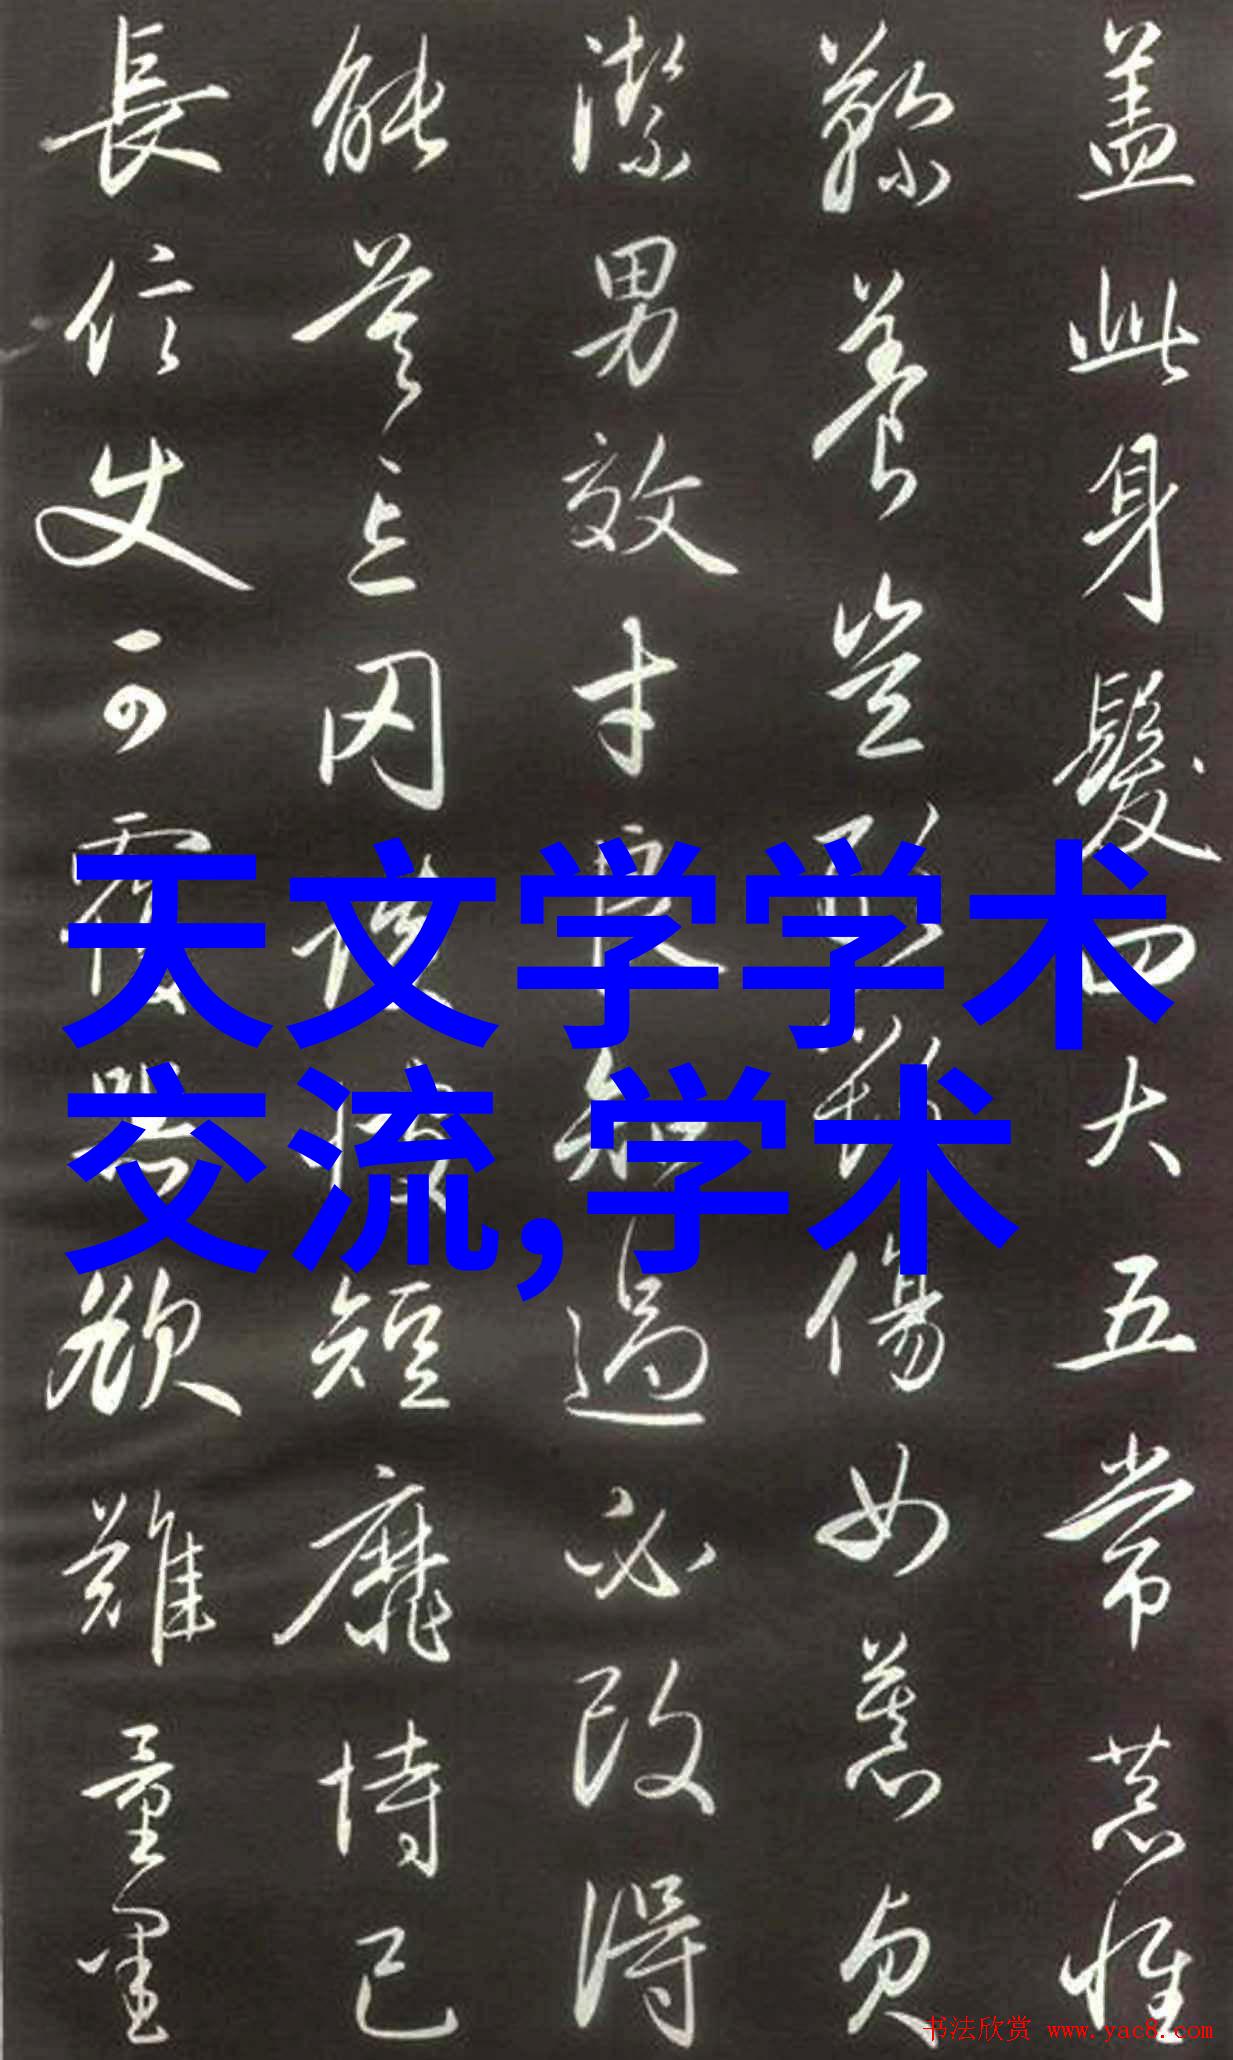 盖此身髮四大五常恭惟
鞠養豈敢毀傷女慕貞
潔男效才良知過必改得
能莫忘罔談彼短靡恃己
長信使可覆器欲難量墨
天文学学术
交流,学术
书法欣赏 www.yac8.com